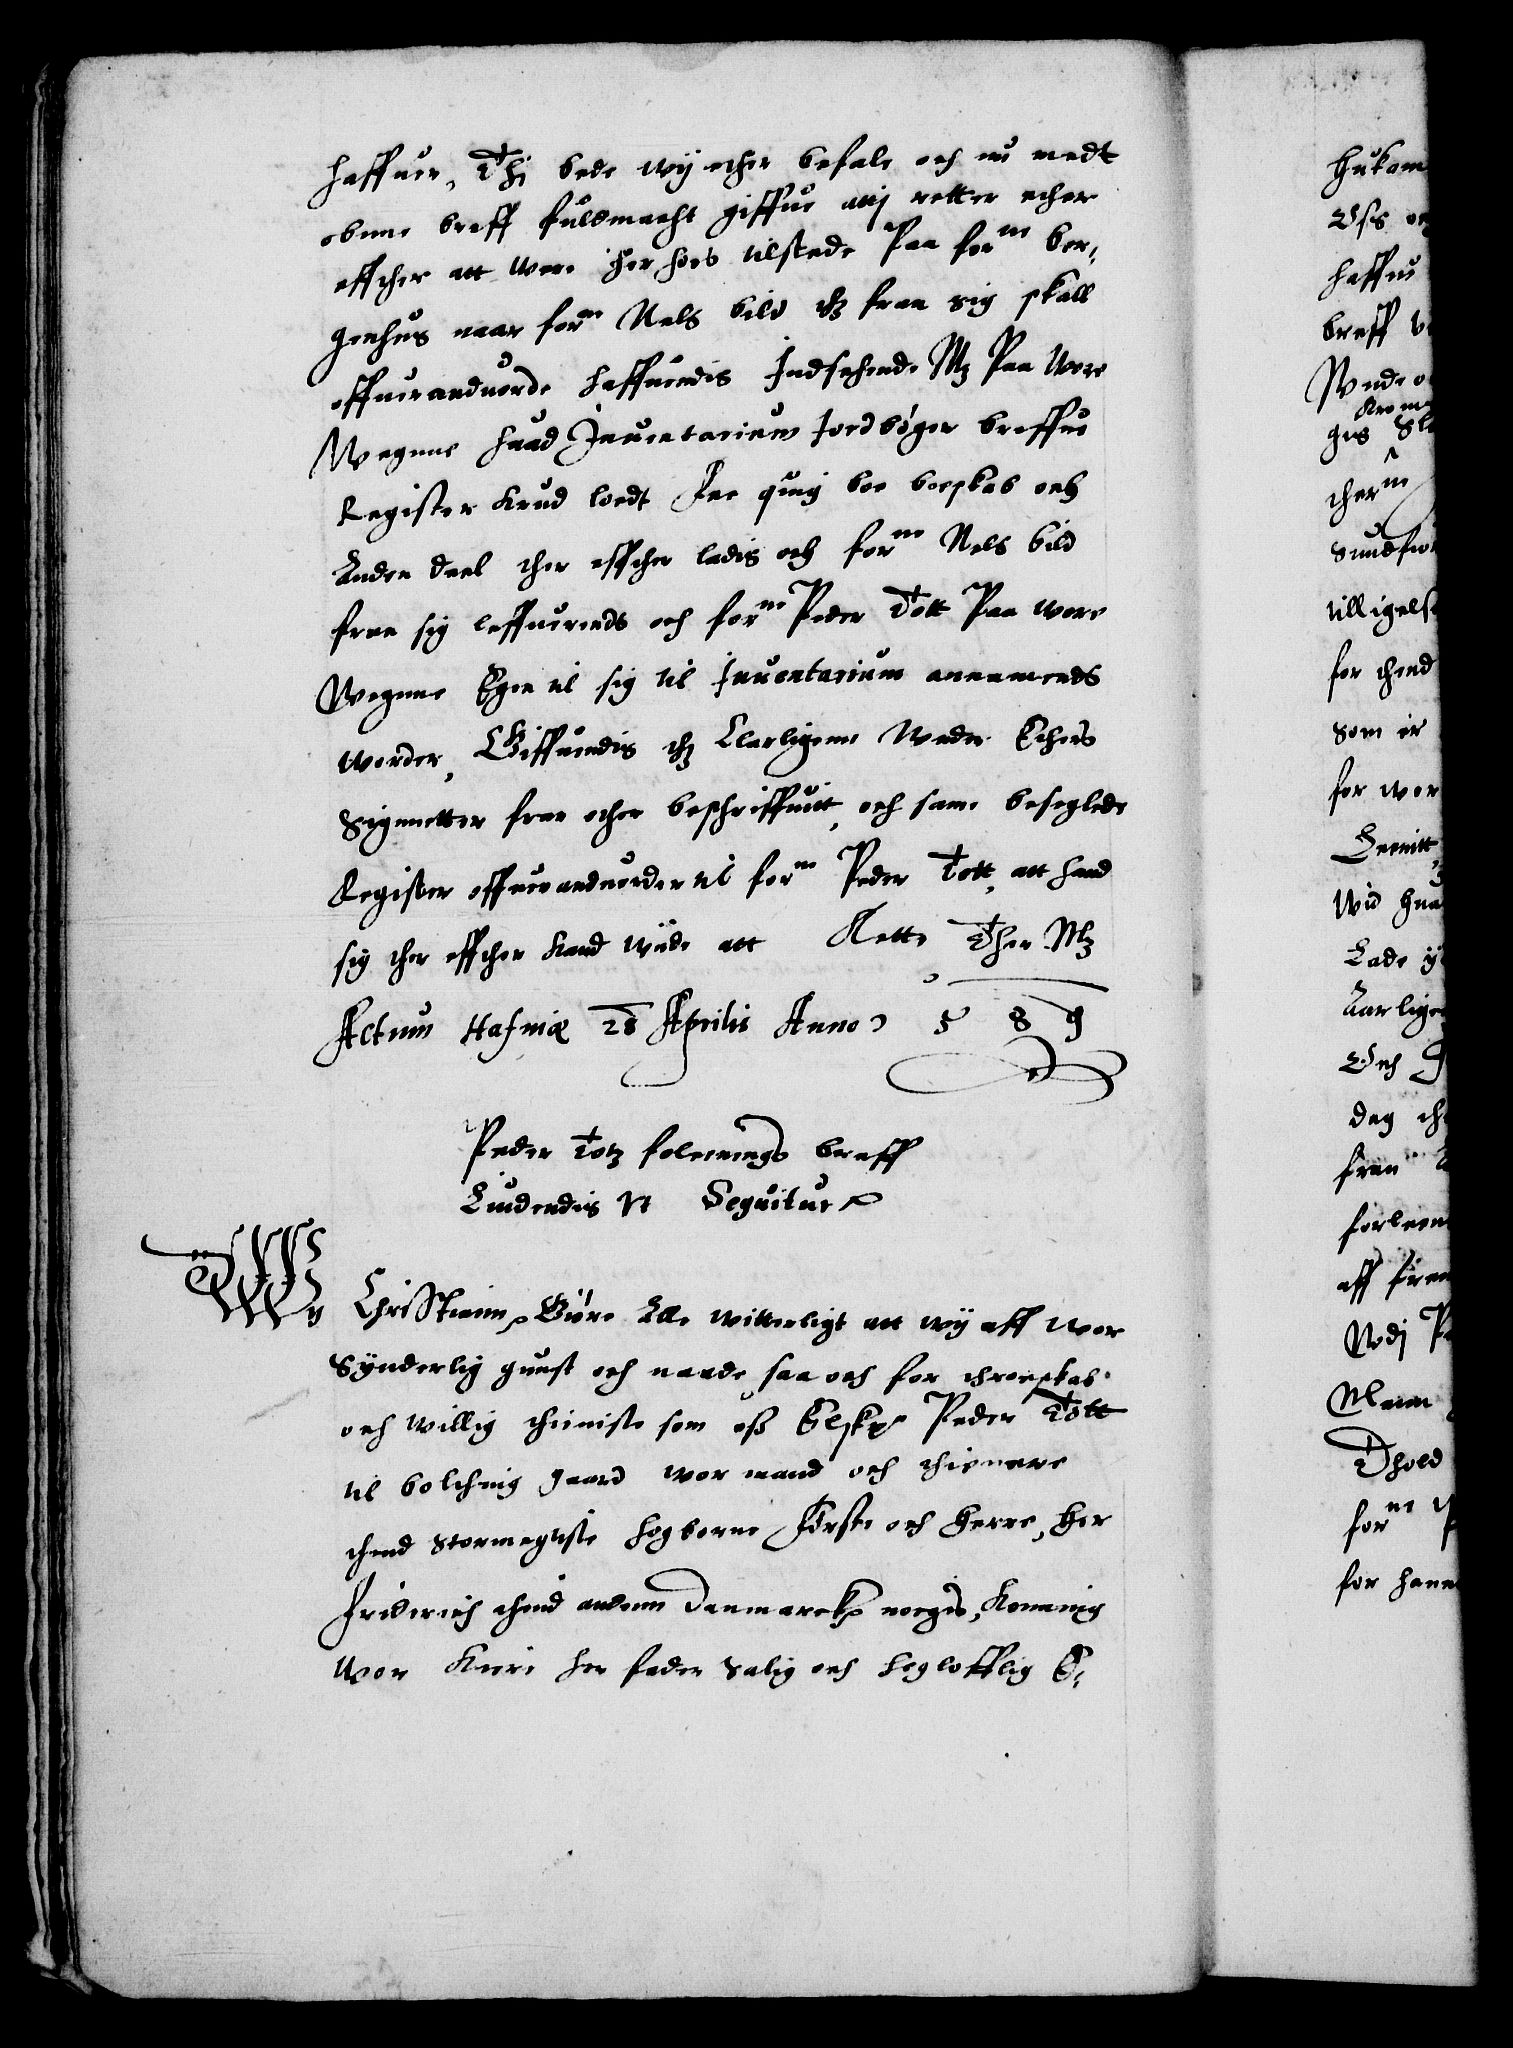 haffuer, Thj bede wij ether befale och nu medt
obnne breff fuldmacht giffue att j retter ether
effther att were her hoes tilstede Paa forne ber,
genhus naar forne Nels bild thz fraa sig skall
offuerandtuorde haffuendis Indsehende Mz Paa wore
Wegnne huad Inuentarium Jordbøger breffue
Register Krud lodt Fee quig boe boeskab och
Anden deel ther effther ladis och forne Nels bild
fraa sig leffuerends och forne Peder Tott Paa wore
Wegnne Egen til sig til Inuentarium annamends
worder, Giffuendis thz Clarligenn Under Ethers
Signnetter fraa ether beschriffuitt, och same beseglede
Register offuerandtuorder til forne Peder Tott, att hand
sig ther effther kand wiide att Rette Ther Mz
Actum Hafniæ 28 Aprilis Anno 589
Peder Totz forlenings breff
Liudendis Vt Sequitur
Wy Christiann Giøre Alle witterligt att wij aff wor
Synderlig gunst och naade, saa och for throeskab
och willig thienniste som oss Elske Peder Tott
til bolthing gaard wor mand och thiennere
thend Stormegtiste høgborne Første och Herre, Her
Friderich thend anden Danmarcks norgis, Konning
Wor Kiere her fader Salig och høglofflig E,
Hukom
Oss
haffue
breff
Wende
Krone
gis
therne
Sundfio
tilligels
for thend
som er
for wor

Wid hua
Lade
Aarligen
Och
dag
fraa
forleen
aff

Mand
Thold
forne
for hann